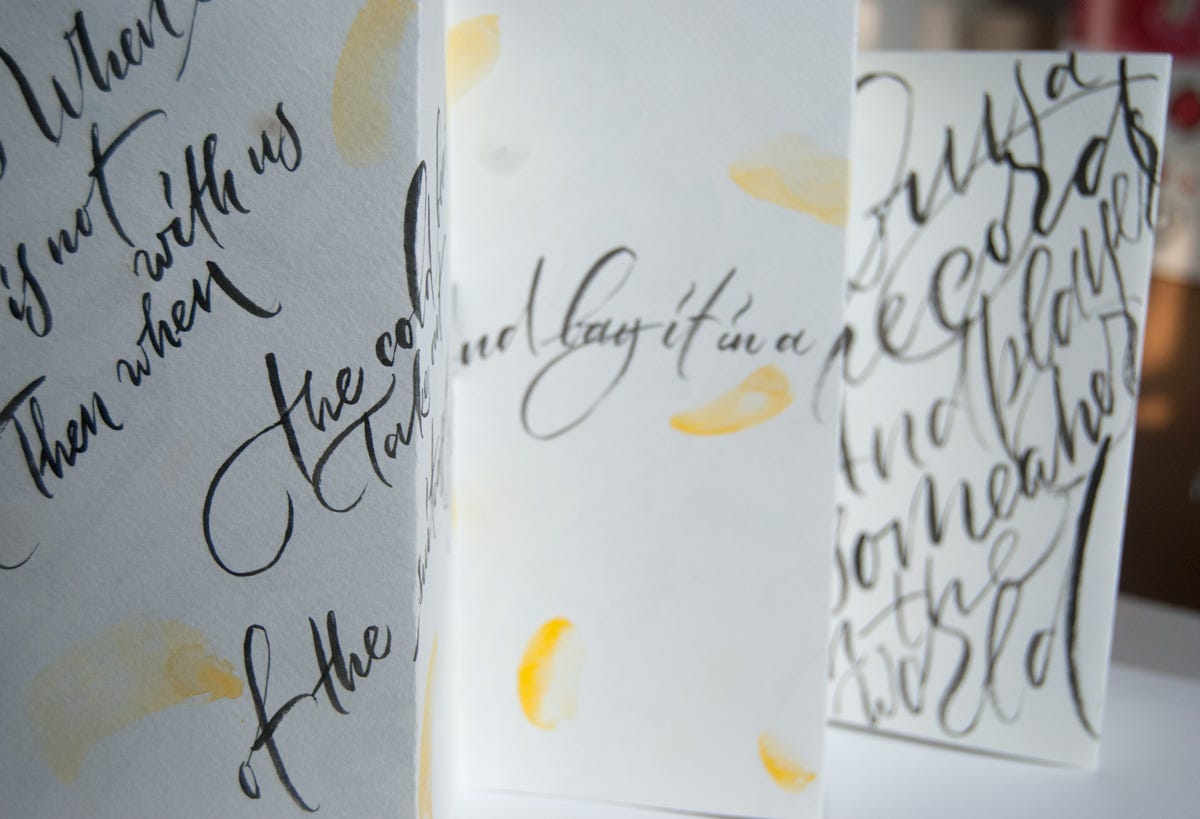 When
is not
with us
Then when
the cold
Take
of the
and lay it in a
Buy a
record
And player
somewhere
in the
world